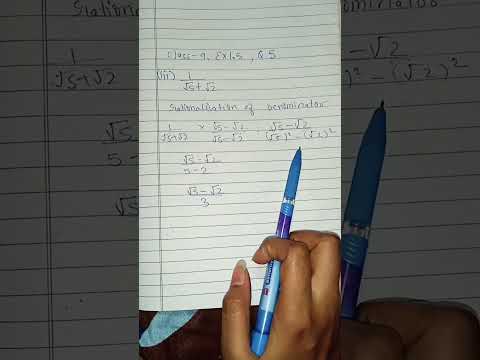 Class-9, Ex 1.5, Q.5
(iii) 1/(√5+√2)
Rationalisation of Denominator
1/(√5+√2) × (√5-√2)/(√5-√2) = (√5-√2)/((√5)² - (√2)²)
(√5-√2)/(5-2)
(√5-√2)/3